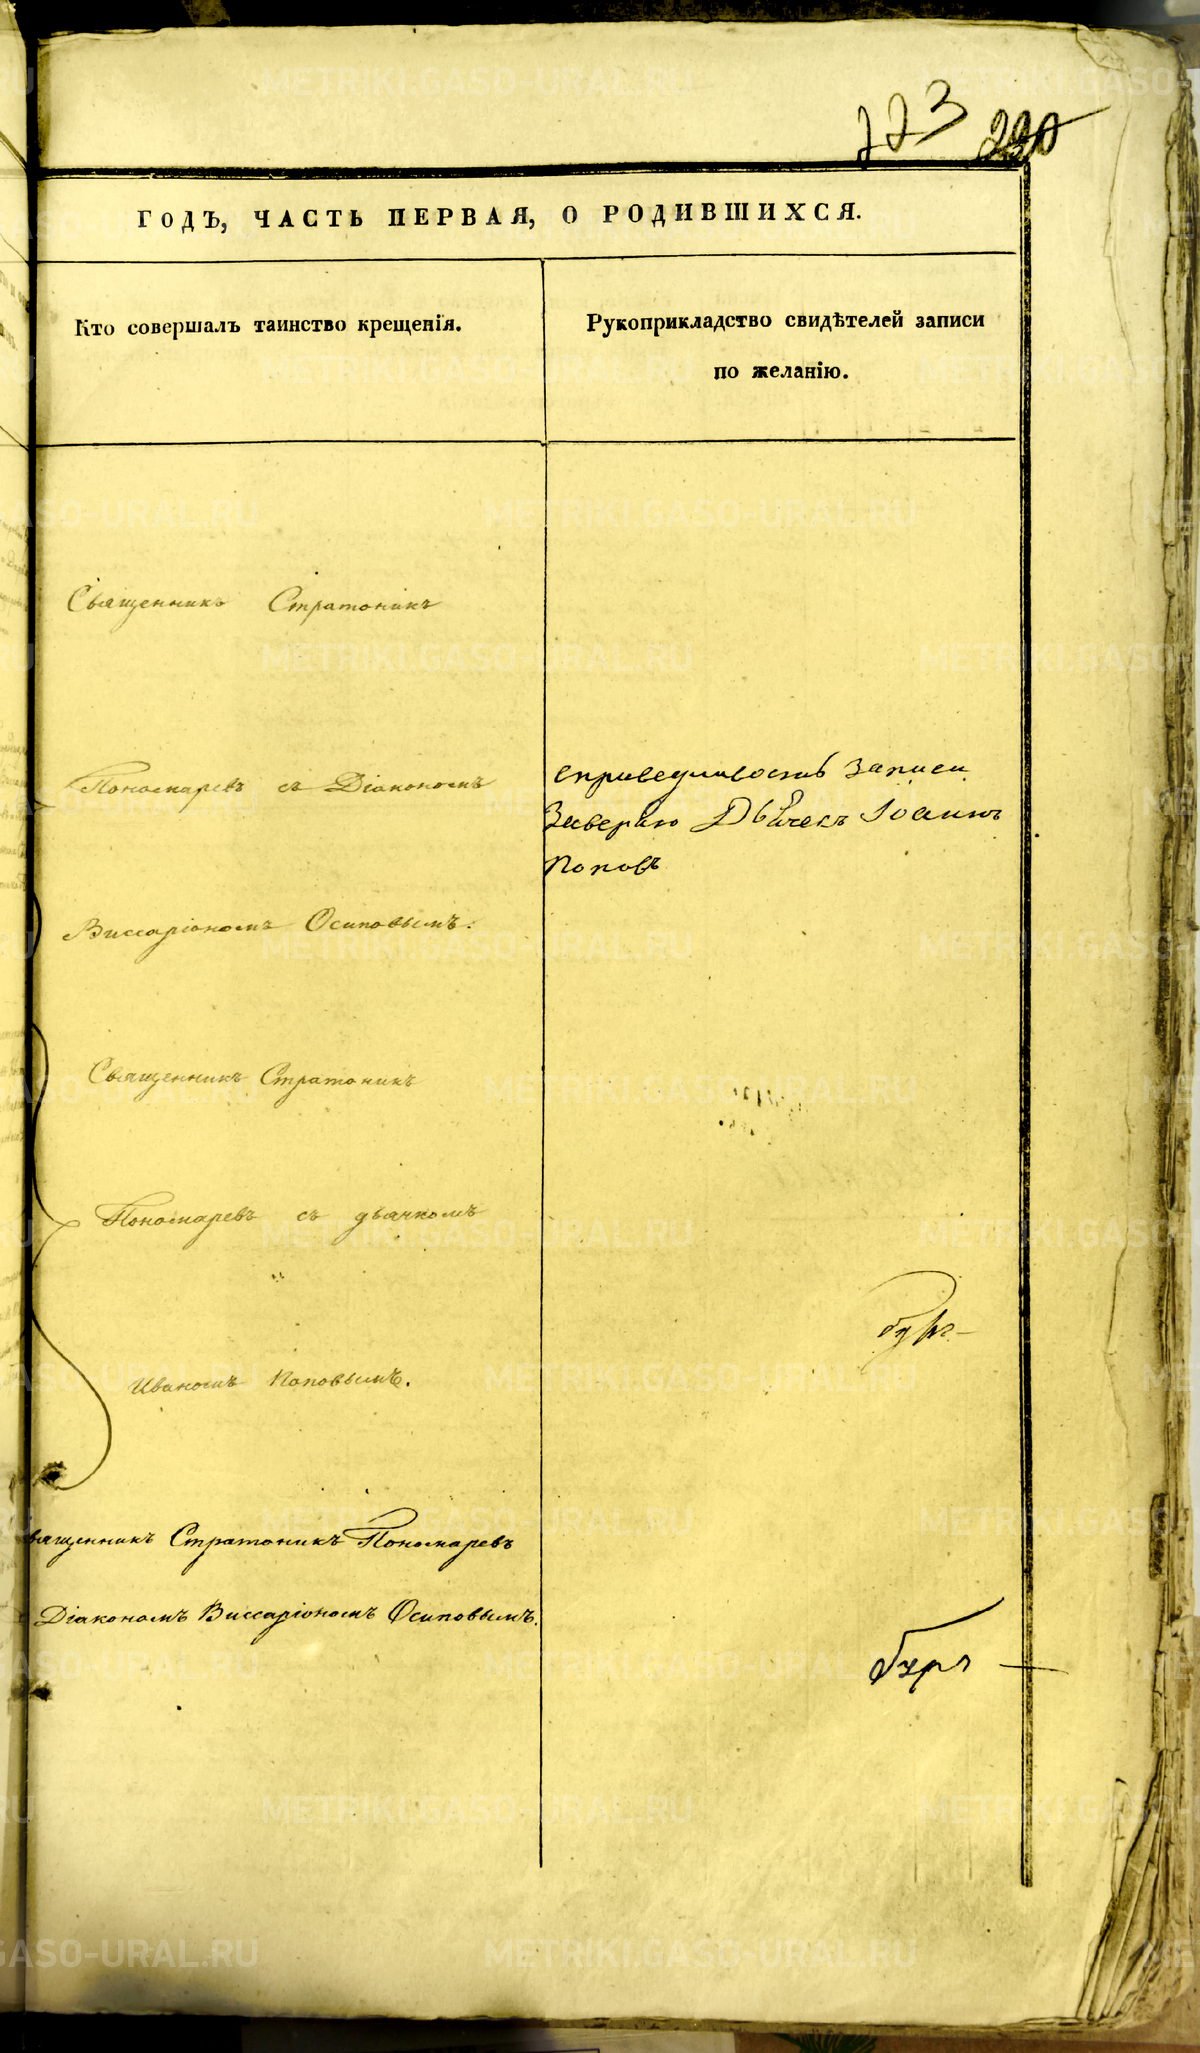 223 220
ГОДЪ, ЧАСТЬ ПЕРВАЯ, О РОДИВШИХСЯ.
Кто совершалъ таинство крещенія.
Рукоприкладство свидѣтелей записи
по желанію.
Священникъ Стратоникъ
Пономаревъ съ Діакономъ
Виссаріономъ Осиповымъ.
справедливость записи
Заверяю Дьячекъ Іоаннъ
Поповъ
Священникъ Стратоникъ
Пономаревъ съ дьячкомъ
Иваномъ Поповымъ.
вященникъ Стратоникъ Пономаревъ
Діакономъ Виссаріономъ Осиповымъ.
METRIKI.GASO-URAL.RU